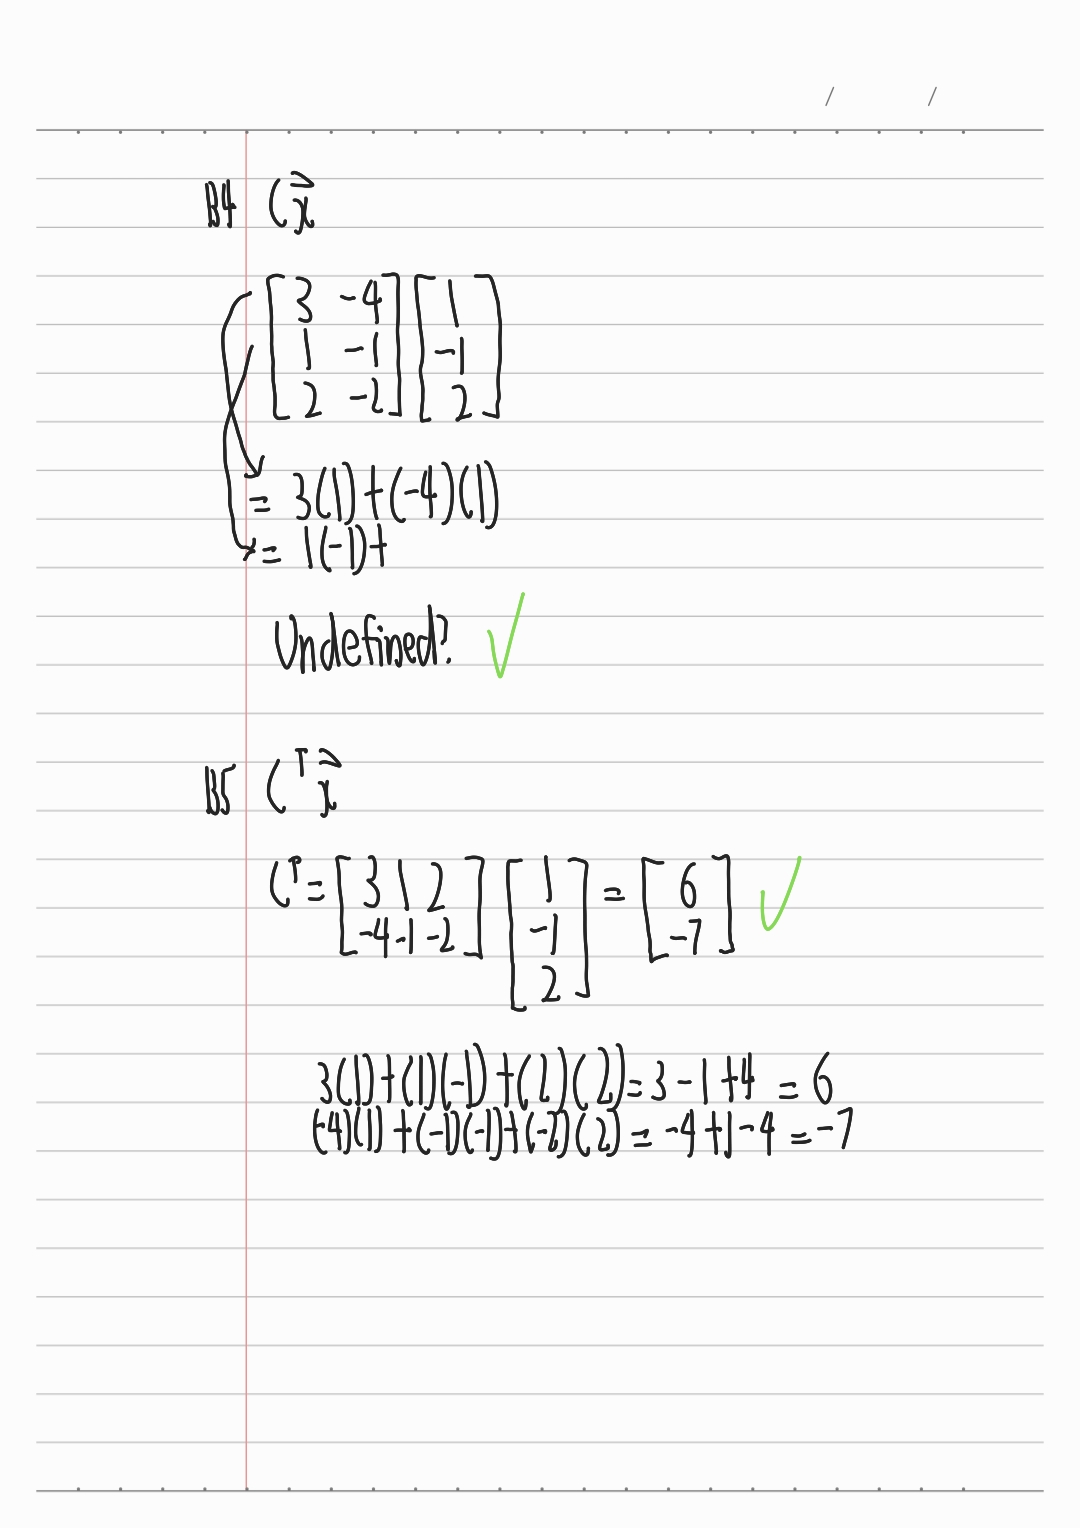 / /
B4 C x⃗
[3 -4] [1]
[1 -1] [-1]
[2 -2] [2]
= 3(1)+(-4)(1)
= 1(-1)+
Undefined? ✓
B5 Cᵀ x⃗
Cᵀ = [3 1 2] [1] = [6] ✓
[-4 -1 -2] [-1] [-7]
[2]
3(1)+(1)(-1)+(2)(2)=3-1+4 = 6
(-4)(1)+(-1)(-1)+(-2)(2) = -4+1-4 = -7